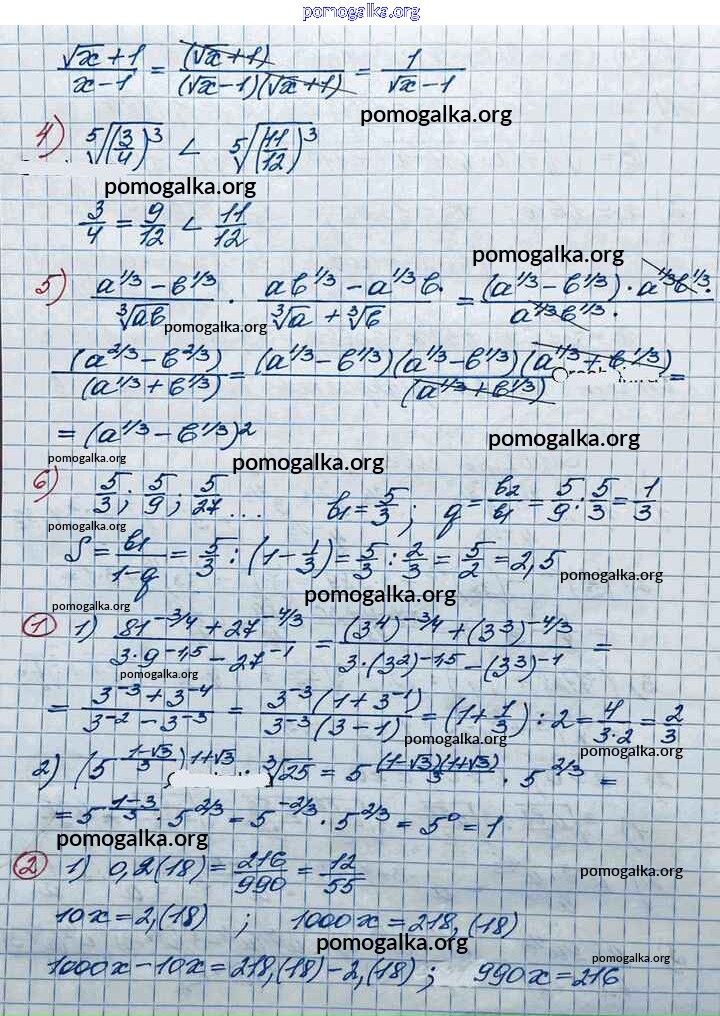 pomogalka.org
(√x + 1)/(x − 1) = (√x + 1)/((√x − 1)(√x + 1)) = 1/(√x − 1)
pomogalka.org
4) ⁵√(3/4)³ < ⁵√(11/12)³
pomogalka.org
3/4 = 9/12 < 11/12
pomogalka.org
5) (a^1/3 − b^1/3)/∛(ab) · (ab^1/3 − a^1/3 b)/(∛a + ∛b) = ((a^1/3 − b^1/3) · a^1/3 b^1/3 ·)/(a^1/3 b^1/3 ·)
pomogalka.org
(a^2/3 − b^2/3)/(a^1/3 + b^1/3) = (a^1/3 − b^1/3)(a^1/3 − b^1/3)(a^1/3 + b^1/3)/(a^1/3 + b^1/3) =
= (a^1/3 − b^1/3)²
pomogalka.org
pomogalka.org
pomogalka.org
6) 5/3; 5/9; 5/27 ... b1 = 5/3; q = b2/b1 = 5/9 : 5/3 = 1/3
pomogalka.org
S = b1/(1−q) = 5/3 : (1 − 1/3) = 5/3 : 2/3 = 5/2 = 2,5
pomogalka.org
pomogalka.org
pomogalka.org
1 1) (81^−3/4 + 27^−4/3)/(3·9^−1,5 − 27^−1) = ((3^4)^−3/4 + (3^3)^−4/3)/(3·(3^2)^−1,5 − (3^3)^−1) =
pomogalka.org
= (3^−3 + 3^−4)/(3^−2 − 3^−3) = 3^−3(1 + 3^−1)/3^−3(3 − 1) = (1 + 1/3) : 2 = 4/(3·2) = 2/3
pomogalka.org
pomogalka.org
2) (5^(1−√3)/3)^1+√3 ∛25 = 5^((1−√3)(1+√3)/3) · 5^2/3 =
= 5^(1−3)/3 · 5^2/3 = 5^−2/3 · 5^2/3 = 5^0 = 1
pomogalka.org
2 1) 0,2(18) = 216/990 = 12/55
pomogalka.org
10x = 2,(18) ; 1000x = 218,(18)
pomogalka.org
pomogalka.org
1000x − 10x = 218,(18) − 2,(18) ; 990x = 216